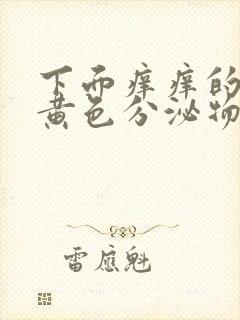 下面痒痒的
黄色分泌物
雷应魁